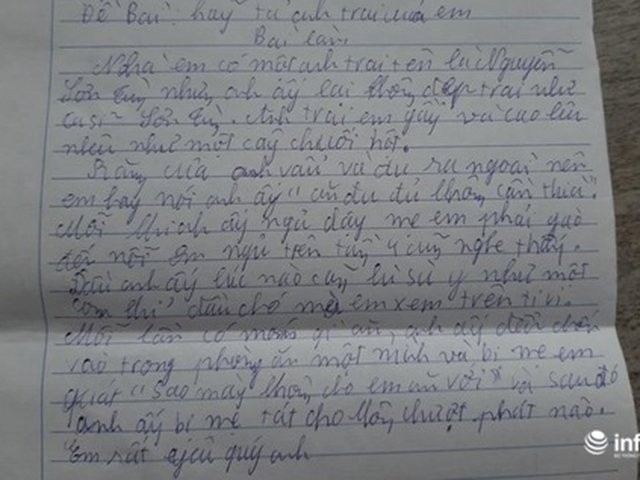 Đề Bài: hãy tả anh trai của em
Bài làm
Nhà em có một anh trai tên là Nguyễn
Sơn Tùng nhưng anh ấy lại không đẹp trai như
ca sĩ Sơn Tùng. Anh trai em gầy và cao lêu
nghêu như một cây chuối hột.
Răng của anh vẩu và đu ra ngoài nên
em hay nói anh ấy "ăn đu đủ không cần thìa".
Mỗi khi anh ấy ngủ dậy mẹ em phải gào
đến nỗi em ngủ trên tầng 4 cũng nghe thấy.
Đầu anh ấy lúc nào cũng xù y như một
đầu chó mà em xem trên ti vi.
Mỗi lần có món gì ăn, anh ấy đều
vào trong phòng ăn một mình và bị mẹ em
quát "Sao mày không cho em ăn với" và sau đó
anh ấy bị mẹ tát cho không chượt phát nào.
Em rất quý anh
infonet